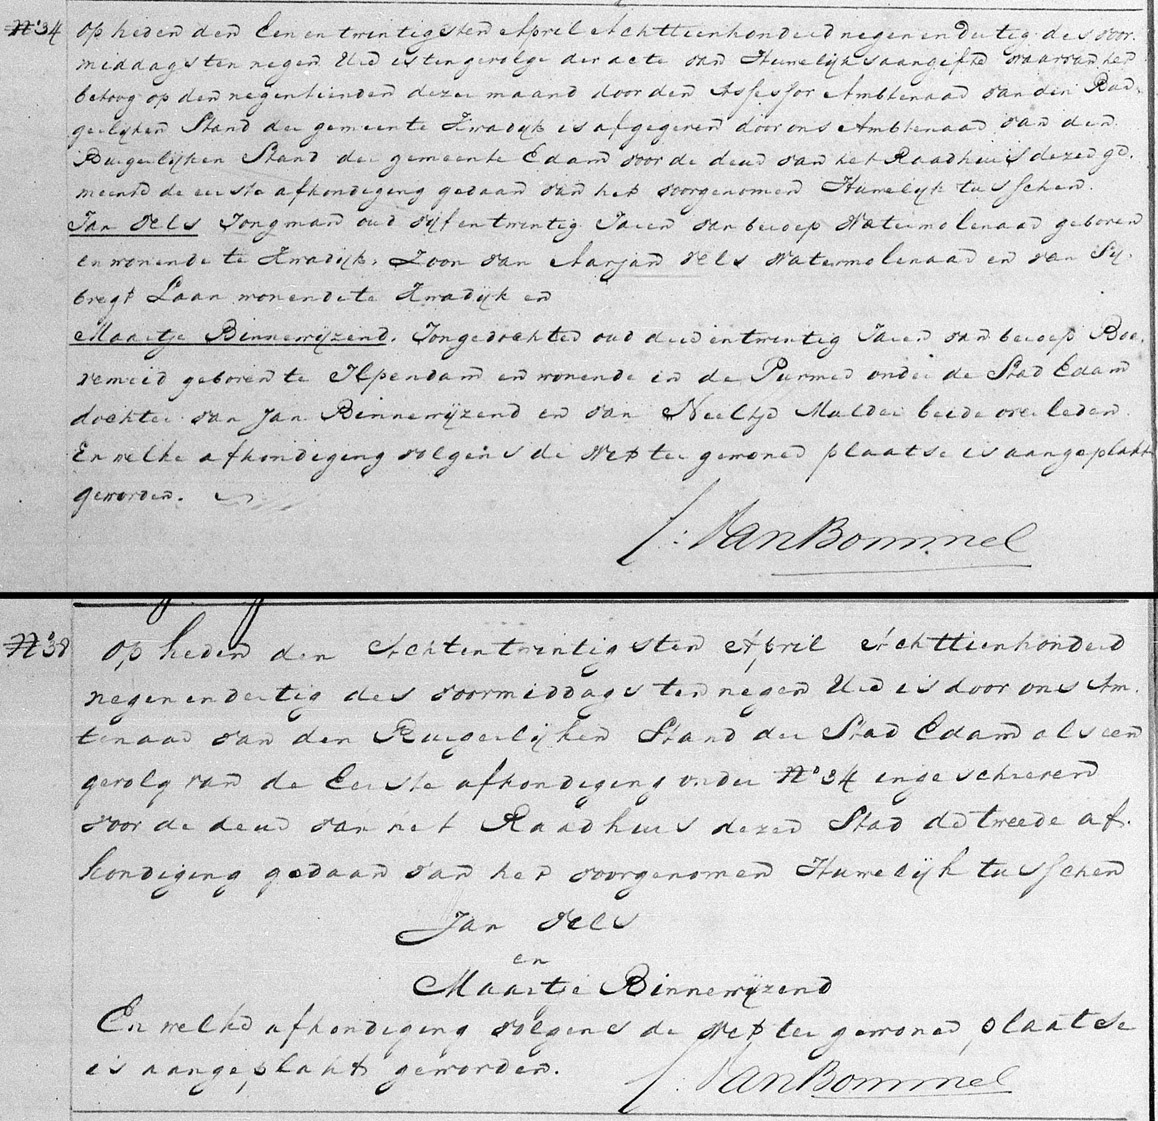 N° 34 Op heden den Een en twintigsten April Achttienhonderd negen en dertig des voor-
middags ten negen Ure is ten gevolge der acte van Huwelijks aangifte waarvan het
betoog op den negentienden dezer maand door den Assessor Ambtenaar van den Bur-
gerlijken Stand der gemeente Kwadijk is afgegeven door ons Ambtenaar van den
Burgerlijken Stand der gemeente Edam voor de deur van het Raadhuis dezer ge-
meente de eerste afkondiging gedaan van het voorgenomen Huwelijk tusschen
Jan Vels Jongman oud vijf en twintig Jaren van beroep Watermolenaar geboren
en wonende te Kwadijk, Zoon van Aarjan Vels Watermolenaar en van Sij-
bregt Laan wonende te Kwadijk en
Maartje Binnewijzend, Jongedochter oud drie en twintig Jaren van beroep Boe-
remeid geboren te Ilpendam en wonende in de Purmer onder de Stad Edam
dochter van Jan Binnewijzend en van Neeltje Mulder beide overleden
En welke afkondiging volgens de Wet ter gewone plaatse is aangeplakt
geworden.
J: Van Bommel
N° 38 Op heden den Achtentwintigsten April Achttienhonderd
negen en dertig des voormiddags ten negen Ure is door ons Am-
tenaar van den Burgerlijken Stand der Stad Edam als een
gevolg van de Eerste afkondiging onder N° 34 ingeschreven
voor de deur van het Raadhuis dezer Stad de tweede af-
kondiging gedaan van het voorgenomen Huwelijk tusschen
Jan Vels
en
Maartje Binnewijzend
En welke afkondiging volgens de Wet ter gewone plaatse
is aangeplakt geworden.
J: Van Bommel